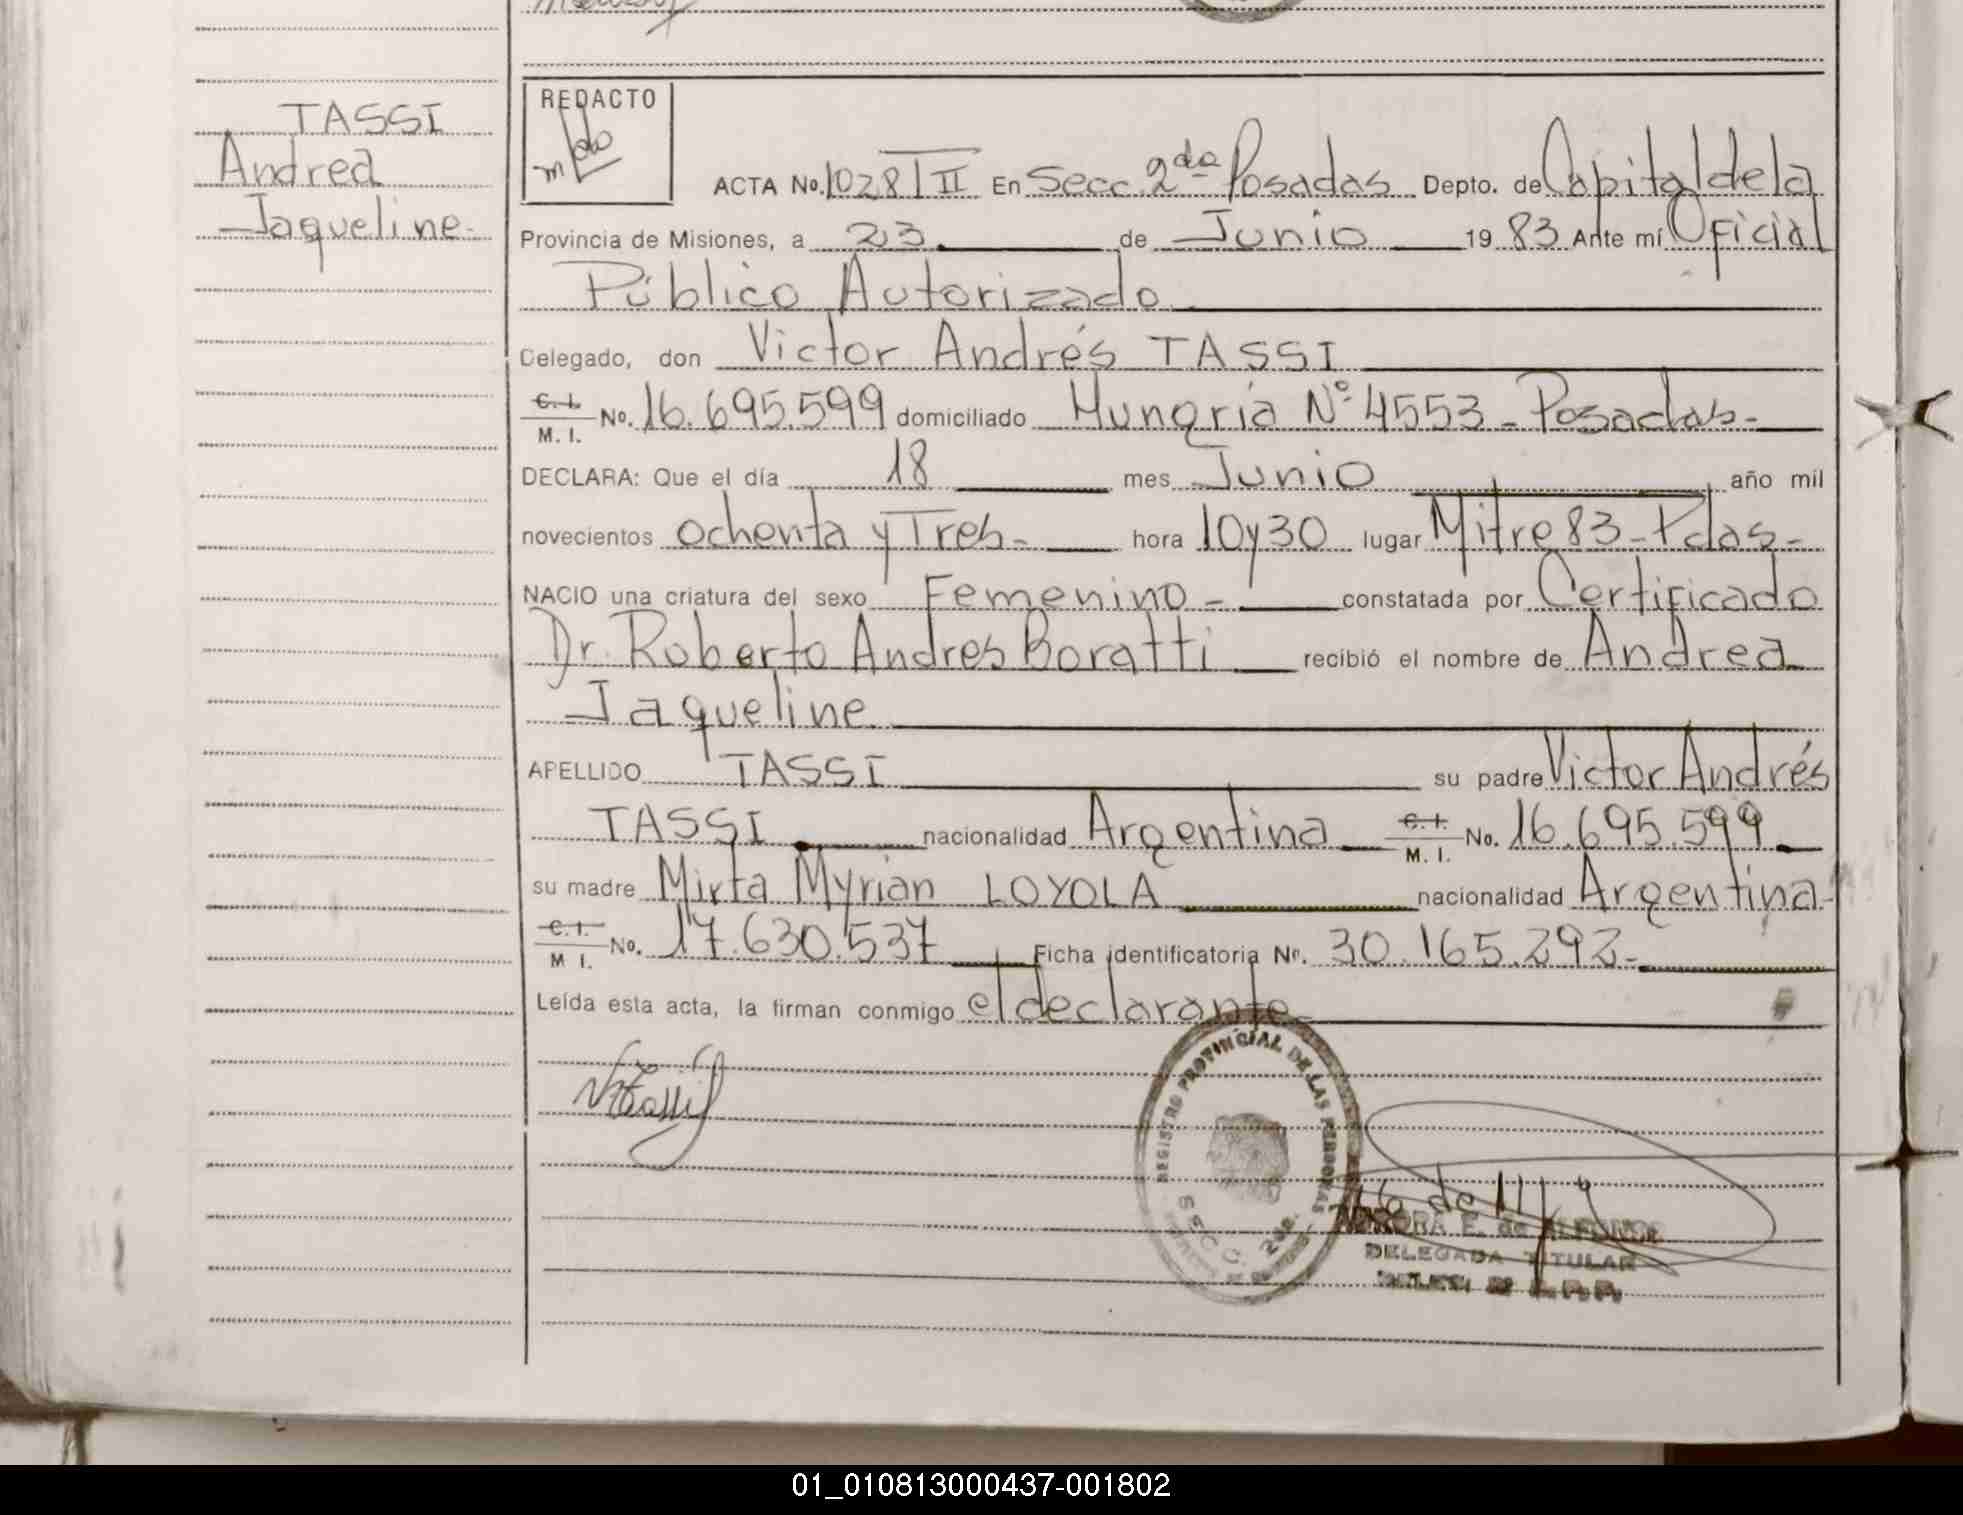 TASSI
Andrea
Jaqueline-
REDACTO
ACTA No. 1028 T II En Secc. 2da Posadas Depto. de Capital de la
Provincia de Misiones, a 23 de Junio 19 83 Ante mí Oficial
Público Autorizado
Delegado, don Victor Andrés TASSI
C. I. M. I. No. 16.695.599 domiciliado Hungria Nº 4553 - Posadas -
DECLARA: Que el día 18 mes Junio año mil
novecientos ochenta y Tres - hora 10 y 30 lugar Mitre 83 - Pdas -
NACIO una criatura del sexo Femenino - constatada por Certificado
Dr. Roberto Andres Boratti recibió el nombre de Andrea
Jaqueline
APELLIDO TASSI su padre Victor Andrés
TASSI nacionalidad Argentina C. I. M. I. No. 16.695.599
su madre Mirta Myrian LOYOLA nacionalidad Argentina-
C. I. M I. No. 17.630.537 Ficha identificatoria Nº. 30.165.292-
Leída esta acta, la firman conmigo el declarante
REGISTRO PROVINCIAL DE LAS PERSONAS
SECC. 2da.
AURORA E. de
DELEGADA TITULAR
01_010813000437-001802